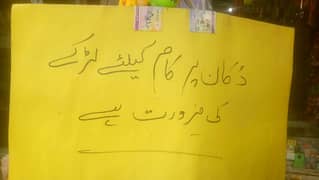 دکان پر کام کیلئے لڑکے
کی ضرورت ہے